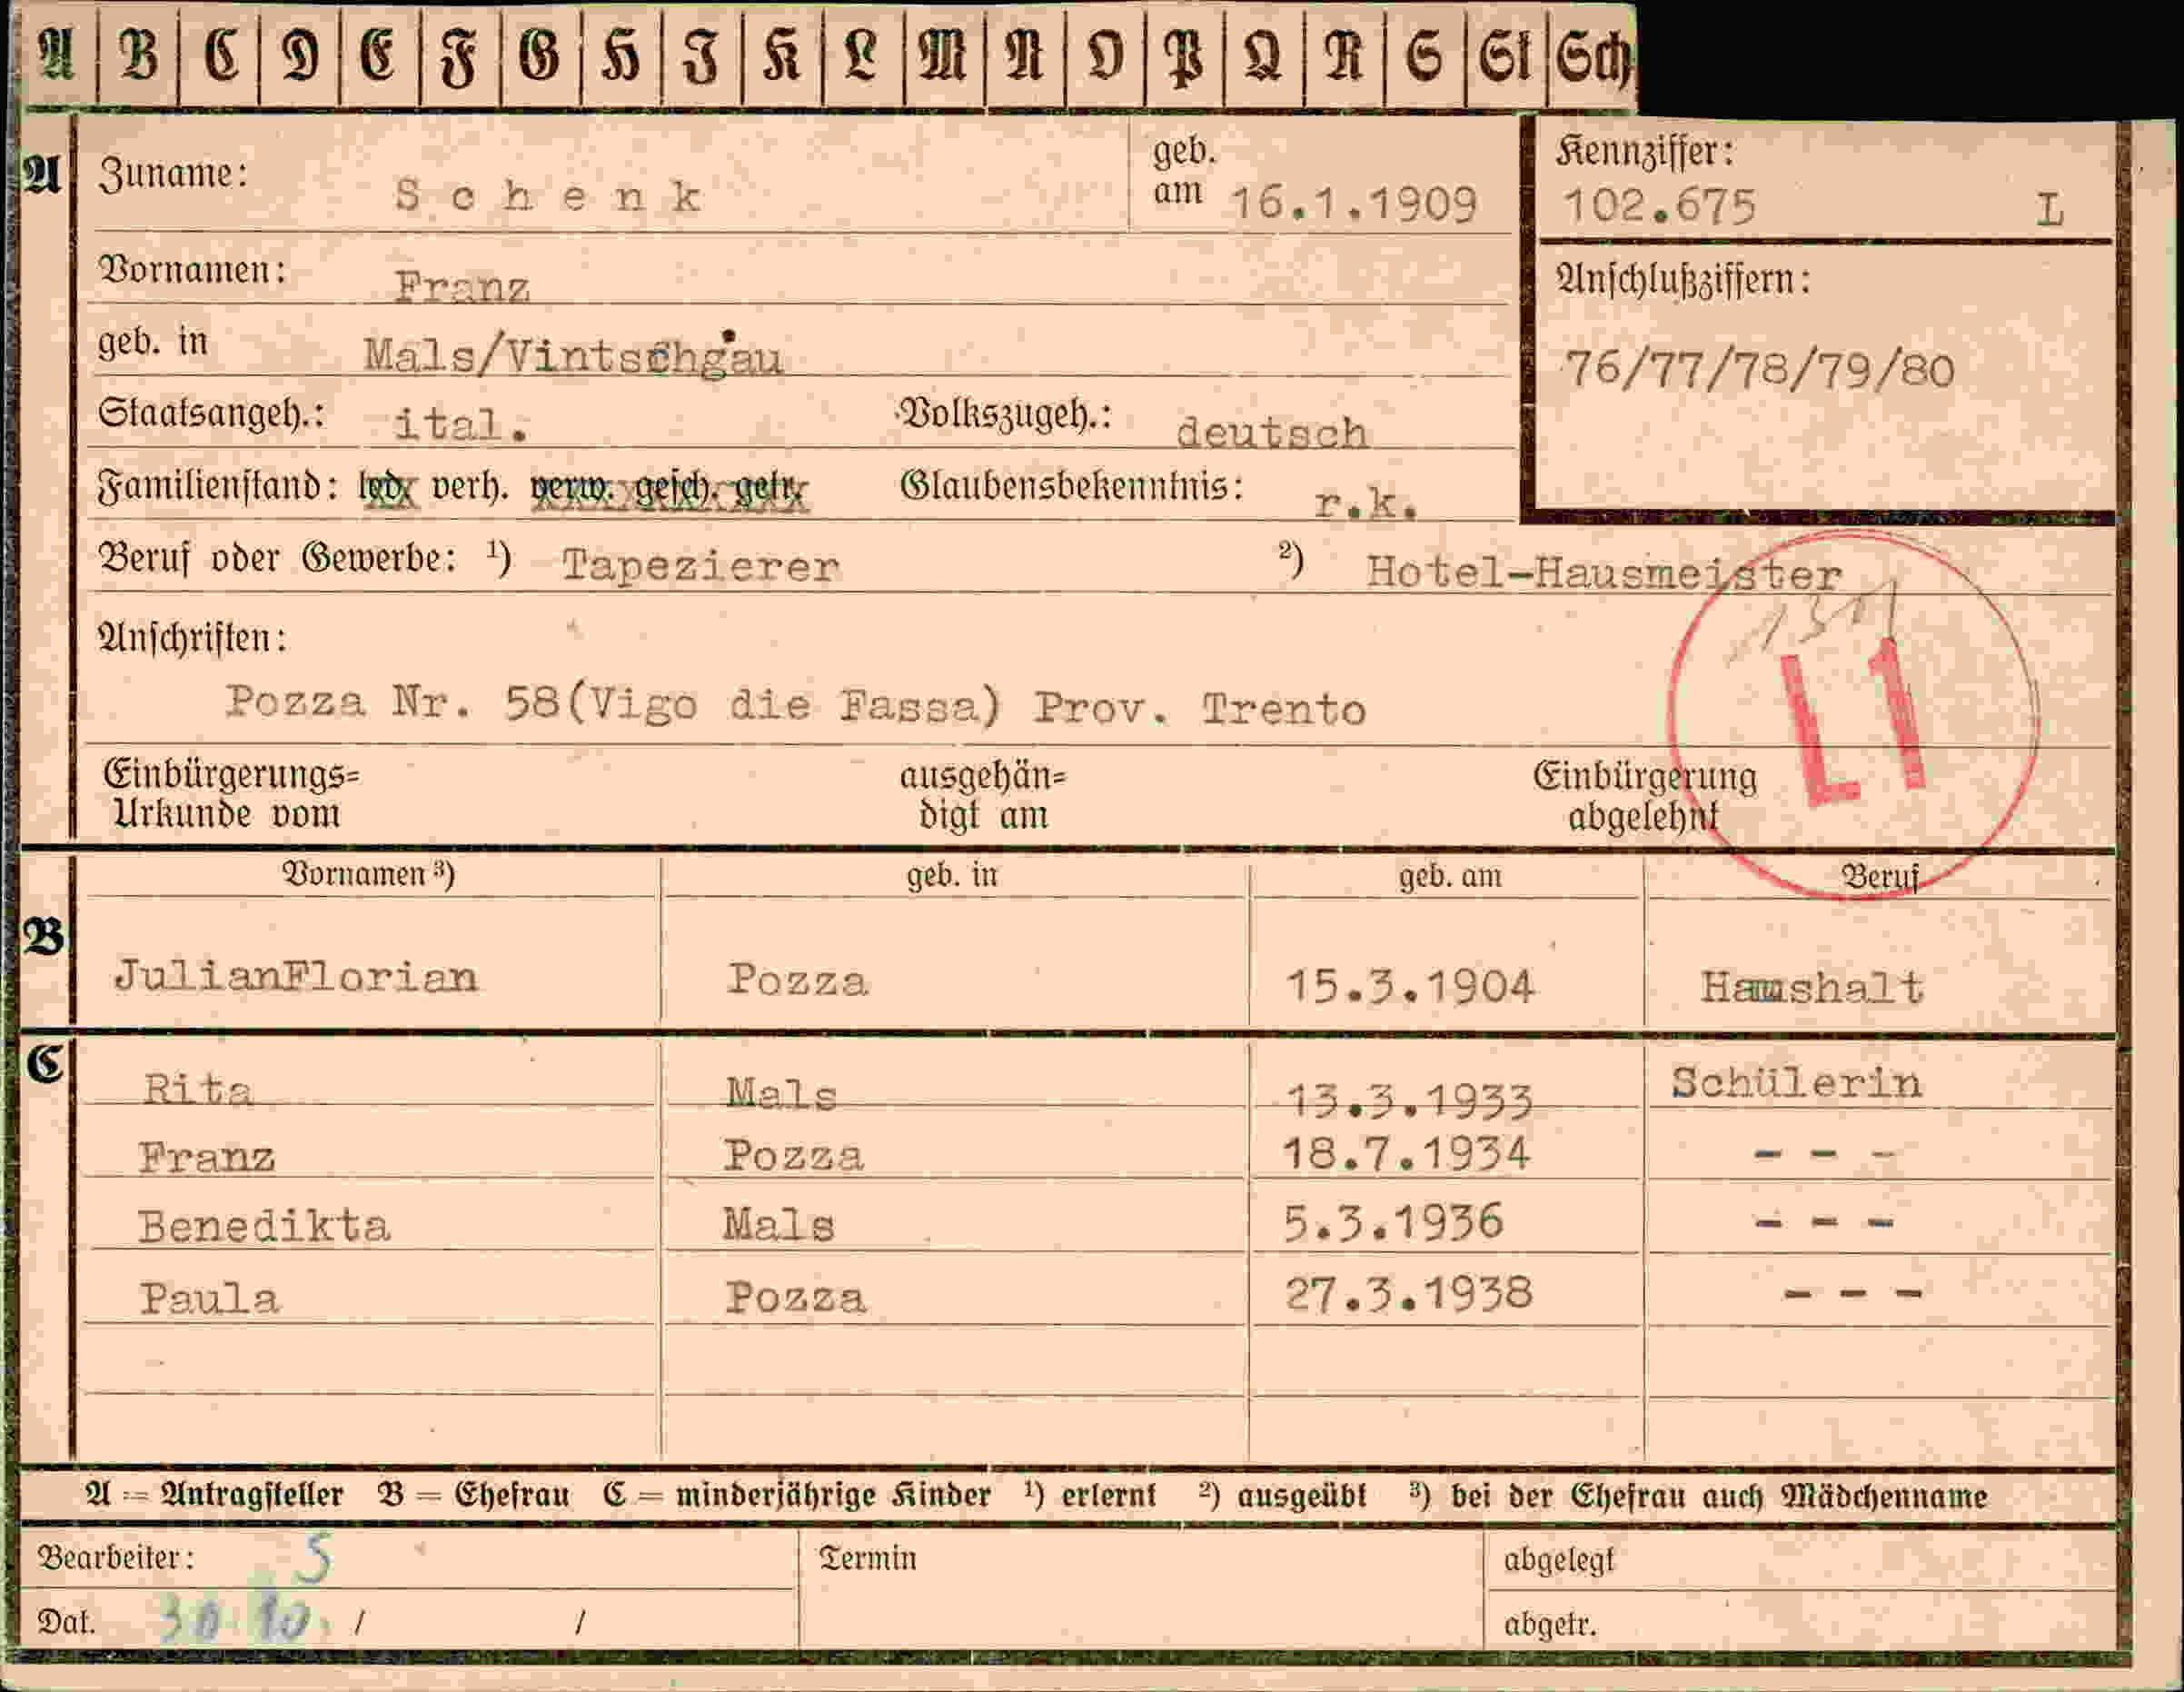 A B C D E F G H I K L M N O P Q R S St Sch
A Zuname: Schenk geb. am 16.1.1909 Kennziffer: 102.675 L
Vornamen: Franz Anschlußziffern:
geb. in Mals/Vintschgau 76/77/78/79/80
Staatsangeh.: ital. Volkszugeh.: deutsch
Familienstand: led. verh. verw. gesch. getr. Glaubensbekenntnis: r.k.
Beruf oder Gewerbe: ¹) Tapezierer ²) Hotel-Hausmeister
Anschriften:
Pozza Nr. 58(Vigo die Fassa) Prov. Trento
L1
Einbürgerungs= ausgehän= Einbürgerung
Urkunde vom digt am abgelehnt
Vornamen ³) geb. in geb. am Beruf
B JulianFlorian Pozza 15.3.1904 Haushalt
C Rita Mals 13.3.1933 Schülerin
Franz Pozza 18.7.1934 - - -
Benedikta Mals 5.3.1936 - - -
Paula Pozza 27.3.1938 - - -
A = Antragsteller B = Ehefrau C = minderjährige Kinder ¹) erlernt ²) ausgeübt ³) bei der Ehefrau auch Mädchenname
Bearbeiter: S Termin abgelegt
Dat. 30.10. / / abgetr.